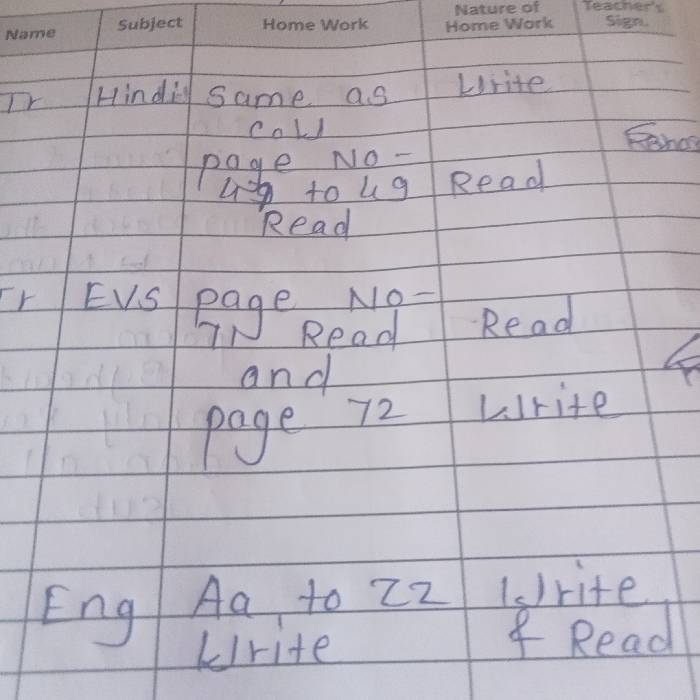 Name Subject Home Work Nature of Home Work Teacher's Sign.
Tr Hindi Same as Write
page No-
to 49 Read
Read
Tr EVS page No-
Read Read
and
page 72 Write
Eng Aa to Zz Write
Write & Read